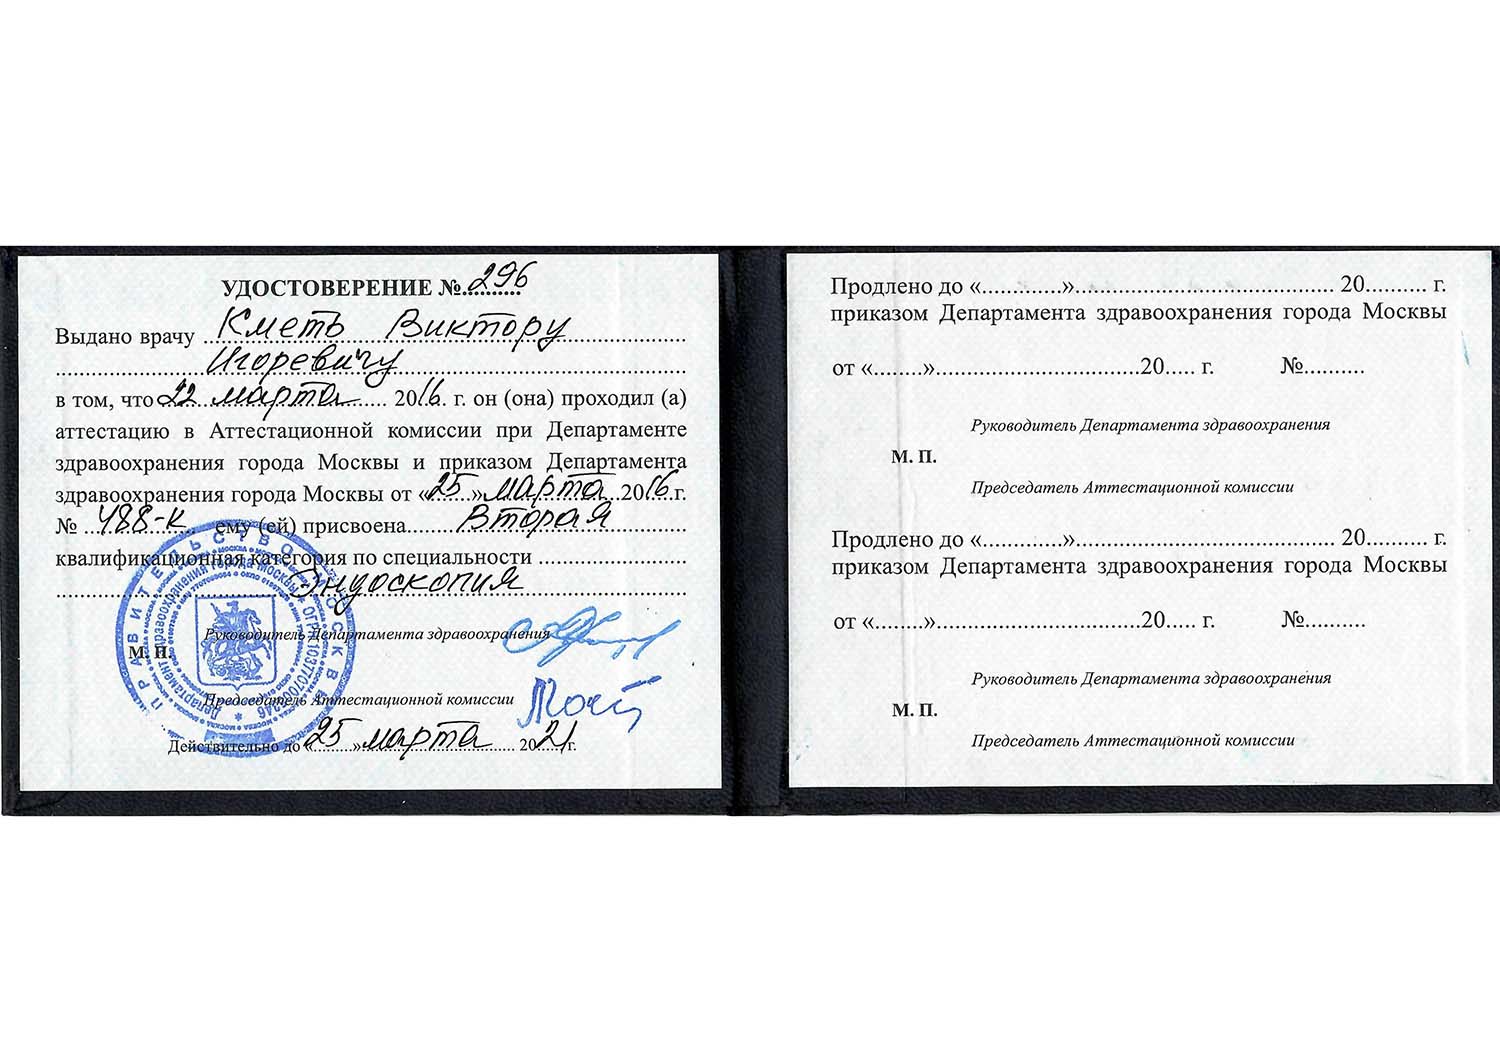 УДОСТОВЕРЕНИЕ №..296........
Выдано врачу Кметь Виктору
Игоревичу
в том, что 22 марта 2016. г. он (она) проходил (а)
аттестацию в Аттестационной комиссии при Департаменте
здравоохранения города Москвы и приказом Департамента
здравоохранения города Москвы от «25» марта 2016 г.
№ 488-к ему (ей) присвоена Вторая
квалификационная категория по специальности
Эндоскопия
Руководитель Департамента здравоохранения
М. П.
Председатель Аттестационной комиссии
Действительно до «25» марта 2021 г.
ПРАВИТЕЛЬСТВО МОСКВЫ
Департамент здравоохранения города Москвы * ОГРН 1037707005346 *
Продлено до «.............».......................................... 20.......... г.
приказом Департамента здравоохранения города Москвы
от «........».................................20..... г. №..........
Руководитель Департамента здравоохранения
М. П.
Председатель Аттестационной комиссии
Продлено до «.............».......................................... 20.......... г.
приказом Департамента здравоохранения города Москвы
от «........».................................20..... г. №..........
Руководитель Департамента здравоохранения
М. П.
Председатель Аттестационной комиссии